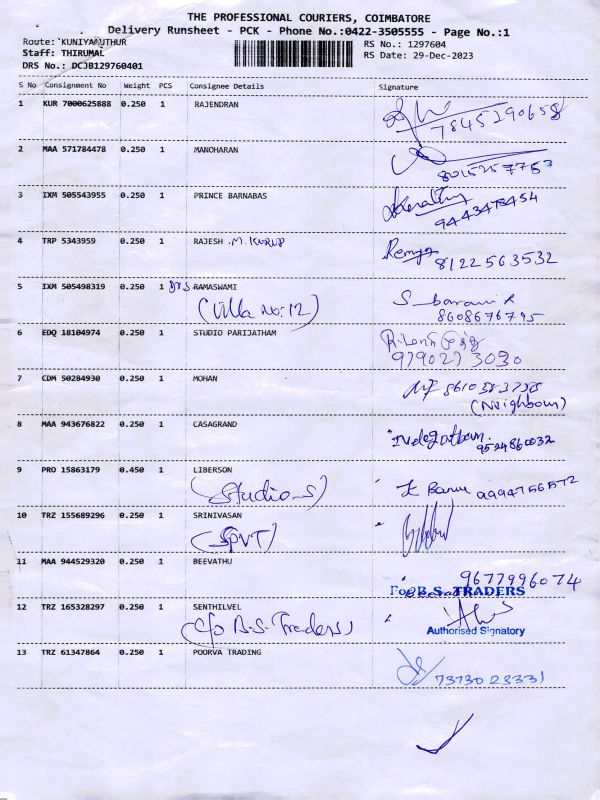 THE PROFESSIONAL COURIERS, COIMBATORE
Delivery Runsheet - PCK - Phone No.:0422-3505555 - Page No.:1
Route: KUNIYAMUTHUR
RS No.: 1297604
Staff: THIRUMAL
RS Date: 29-Dec-2023
DRS No.: DCJB129760401
S No Consignment No Weight PCS Consignee Details Signature
1 KUR 7000625888 0.250 1 RAJENDRAN
7845290658
2 MAA 571784478 0.250 1 MANOHARAN
8015257753
3 IXM 505543955 0.250 1 PRINCE BARNABAS
9443478454
4 TRP 5343959 0.250 1 RAJESH .M. KURUP Remya
8122563532
5 IXM 505498319 0.250 1 RAMASWAMI
(Villa No:12)
8608676795
6 EDQ 18104974 0.250 1 STUDIO PARIJATHAM
9790273030
7 CDM 50284930 0.250 1 MOHAN
(Neighbour)
8 MAA 943676822 0.250 1 CASAGRAND
9524860032
9 PRO 15863179 0.450 1 LIBERSON
(Studio_S)
9994756572
10 TRZ 155689296 0.250 1 SRINIVASAN
(SPVT)
11 MAA 944529320 0.250 1 BEEVATHU
9677996074
For B.S. TRADERS
12 TRZ 165328297 0.250 1 SENTHILVEL
(c/o B.S. Traders)
Authorised Signatory
13 TRZ 61347864 0.250 1 POORVA TRADING
7373023331